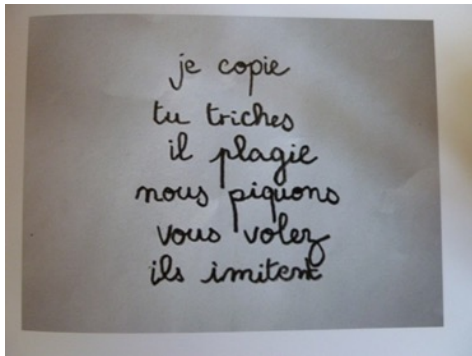 je copie
tu triches
il plagie
nous piquons
vous volez
ils imitent